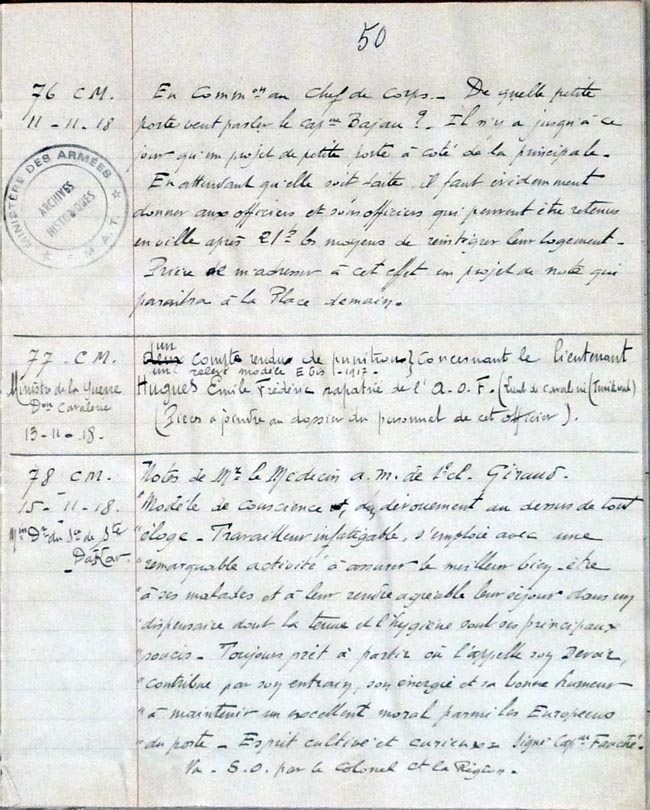 50
76 C.M.
11-11-18
En Comm^on au Chef de Corps. - De quelle petite
porte veut parler le cap^ne Bajau ? - Il n'y a jusqu'à ce
jour qu'un projet de petite porte à coté de la principale. -
En attendant qu'elle soit faite, il faut évidemment
donner aux officiers et sous officiers qui peuvent être retenus
en ville après 21^h les moyens de réintégrer leur logement. -
Prière de m'adresser à cet effet un projet de note qui
paraitra à la Place demain. -
MINISTÈRE DES ARMÉES
ARCHIVES
HISTORIQUES
M.A.T.
77 - C.M.
Ministre de la Guerre
D^on Cavalerie
13-11-18.
un
deux compte rendus de punitions } concernant le lieutenant
un relevé modèle E bis - 1917 -
Hugues Emile Frédéric rapatrié de l'A.O.F. (Lieut de cavalerie)
(Pièces à joindre au dossier du personnel de cet officier).
78 C.M.
15-11-18.
D^r du S^ce de S^té
Dakar
Notes de M^r le Médecin a.m. de 1^e cl. Giraud.
"Modèle de conscience et du dévouement au dessus de tout
"éloge - Travailleur infatigable, s'emploie avec une
"remarquable activité à assurer le meilleur bien-être
"à ses malades et à leur rendre agréable leur séjour dans un
"dispensaire dont la tenue et l'hygiène sont ses principaux
"soucis - Toujours prêt à partir où l'appelle son Devoir,
"contribue par son entrain, son énergie et sa bonne humeur
"à maintenir un excellent moral parmi les Européens
"du poste - Esprit cultivé et curieux Signé Cap^ne Fauché.
Vu - S.O. par le Colonel et la Région. -